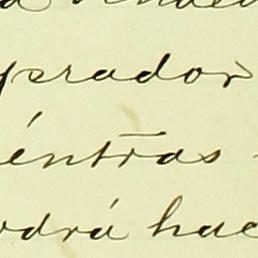 prador
éntras
odrá hac